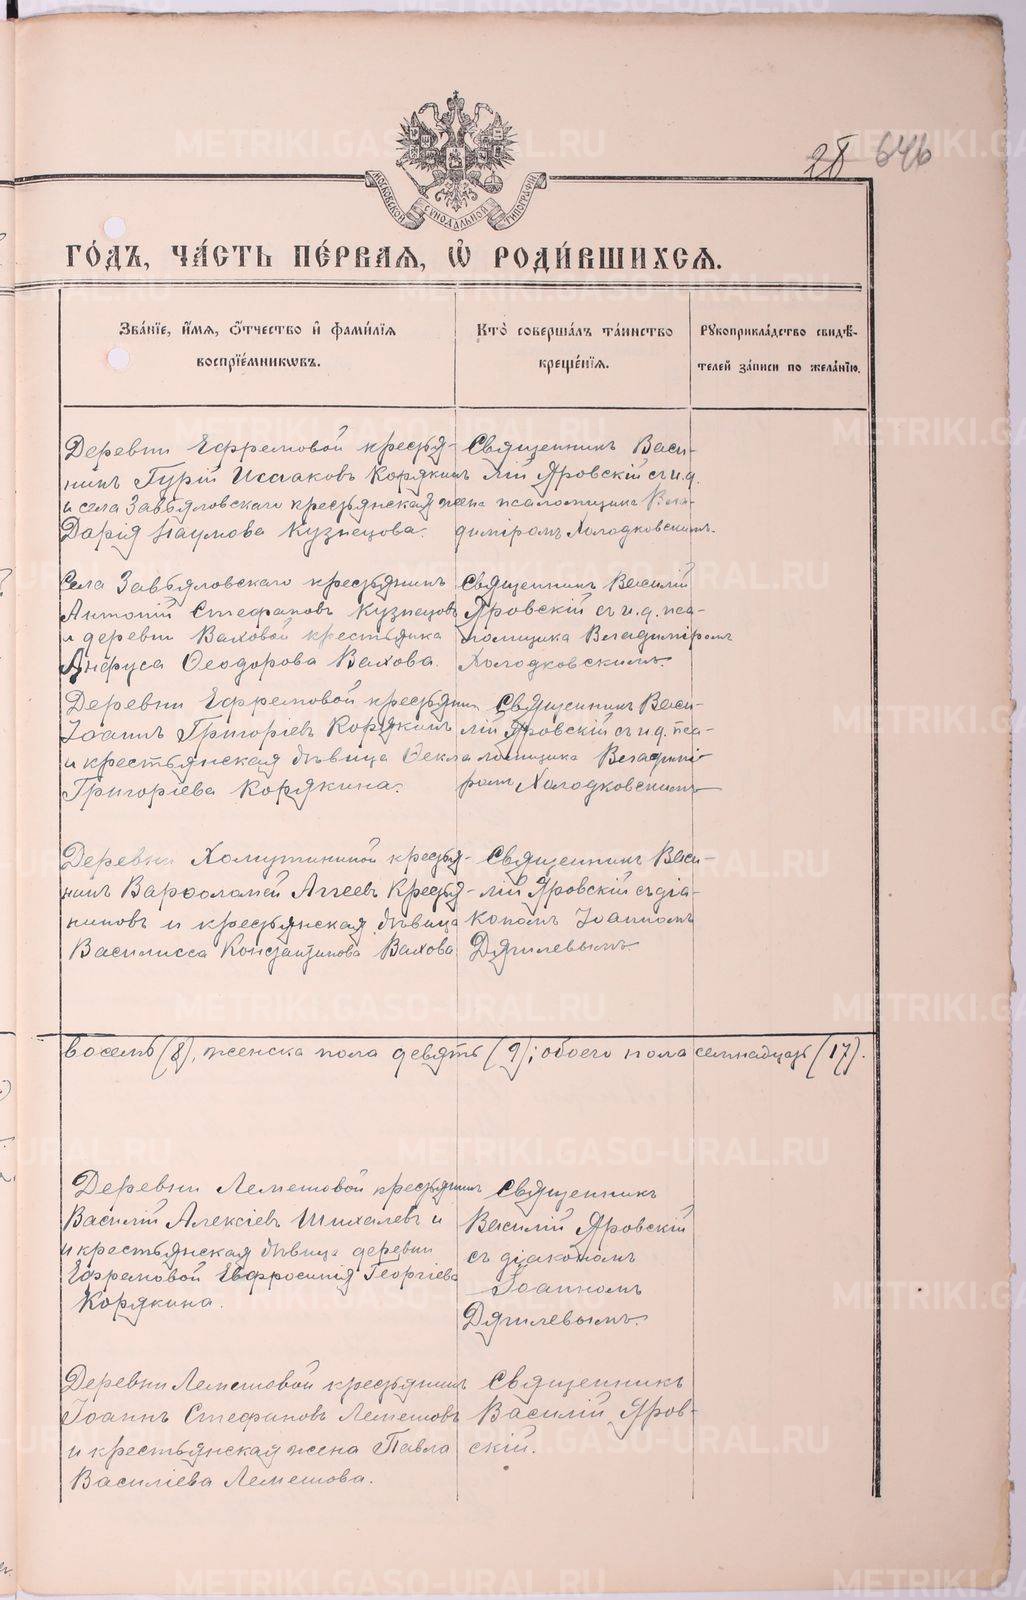 28 646
МОСКОВСКОЙ СѴНОДАЛЬНОЙ ТИПОГРАФІИ
ГО́ДЪ, ЧА́СТЬ ПЕ́РВАЯ, Ѡ҆ РОДИ́ВШИХСЯ.
Зва́нїе, и҆́мѧ, ѻ҆́тчество и҆ фами́лїѧ
воспрїе́мникѡвъ.
Кто̀ соверша́лъ та́инство
креще́нїѧ.
Рꙋкоприкла́дство свидѣ́-
телей за́писи по жела́нїю.
Деревни Ефремовой крестья-
нинъ Гурій Исааковъ Корякинъ
и села Завьяловскаго крестьянская жена
Дарія Наумова Кузнецова.
Священникъ Васи-
лій Яровскій съ и.д.
псаломщика Вла-
диміромъ Холодковскимъ.
Села Завьяловскаго крестьянинъ
Антоній Стефановъ Кузнецовъ
и деревни Ваховой крестьянка
Анфуса Ѳеодорова Вахова.
Священникъ Василій
Яровскій съ и.д. пса-
ломщика Владиміромъ
Холодковскимъ.
Деревни Ефремовой крестьянин
Іоаннъ Григоріевъ Корякинъ
и крестьянская дѣвица Ѳекла
Григоріева Корякина.
Священникъ Васи-
лій Яровскій съ и.д. пса-
ломщика Владимі-
ромъ Холодковскимъ
Деревни Хомутининой крестья-
нинъ Варѳоломей Аггеевъ Крестья-
ниновъ и крестьянская дѣвица
Василисса Константинова Вахова
Священникъ Васи-
лій Яровскій съ діа-
кономъ Іоанномъ
Дягилевымъ.
восемь (8), женска пола девять (9); обоего пола семнадцать (17).
Деревни Лемешовой крестьянинъ
Василій Алексіевъ Шихалевъ и
и крестьянская дѣвица деревни
Ефремовой Евфросинія Георгіева
Корякина.
Священникъ
Василій Яровскій
съ діакономъ
Іоанномъ
Дягилевымъ.
Деревни Лемешовой крестьянинъ
Іоаннъ Стефановъ Лемешовъ
и крестьянская жена Павла
Василіева Лемешова.
Священникъ
Василій Яров-
скій.
METRIKI.GASO-URAL.RU